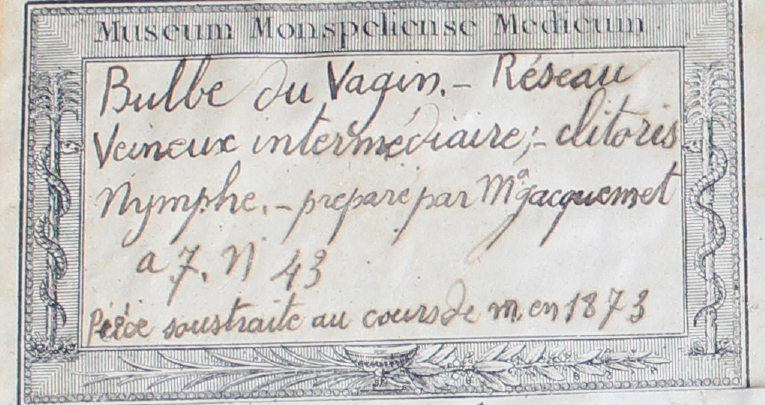 Museum Monspeliense Medicum.
Bulbe du Vagin. - Réseau
Veineux intermédiaire; - clitoris
Nymphe. - préparé par Mr Jacquemet
a 7, N 43
Pièce soustraite au cours de m. en 1873